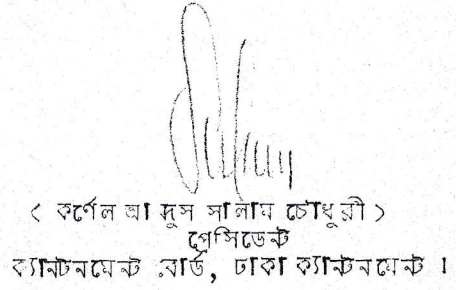 ( কর্ণেল আব্দুস সালাম চৌধুরী )
প্রেসিডেন্ট
ক্যান্টনমেন্ট বোর্ড, ঢাকা ক্যান্টনমেন্ট ।